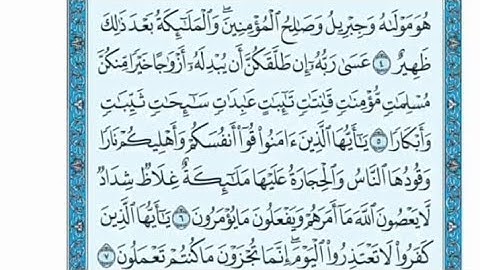 هُوَ مَوْلَىٰهُ وَجِبْرِيلُ وَصَٰلِحُ ٱلْمُؤْمِنِينَۖ وَٱلْمَلَٰٓئِكَةُ بَعْدَ ذَٰلِكَ
ظَهِيرٌ ٤ عَسَىٰ رَبُّهُۥٓ إِن طَلَّقَكُنَّ أَن يُبْدِلَهُۥٓ أَزْوَٰجًا خَيْرًا مِّنكُنَّ
مُسْلِمَٰتٍ مُّؤْمِنَٰتٍ قَٰنِتَٰتٍ تَٰٓئِبَٰتٍ عَٰبِدَٰتٍ سَٰٓئِحَٰتٍ ثَيِّبَٰتٍ
وَأَبْكَارًا ٥ يَٰٓأَيُّهَا ٱلَّذِينَ ءَامَنُوا۟ قُوٓا۟ أَنفُسَكُمْ وَأَهْلِيكُمْ نَارًا
وَقُودُهَا ٱلنَّاسُ وَٱلْحِجَارَةُ عَلَيْهَا مَلَٰٓئِكَةٌ غِلَاظٌ شِدَادٌ
لَّا يَعْصُونَ ٱللَّهَ مَآ أَمَرَهُمْ وَيَفْعَلُونَ مَا يُؤْمَرُونَ ٦ يَٰٓأَيُّهَا ٱلَّذِينَ
كَفَرُوا۟ لَا تَعْتَذِرُوا۟ ٱلْيَوْمَۖ إِنَّمَا تُجْزَوْنَ مَا كُنتُمْ تَعْمَلُونَ ٧